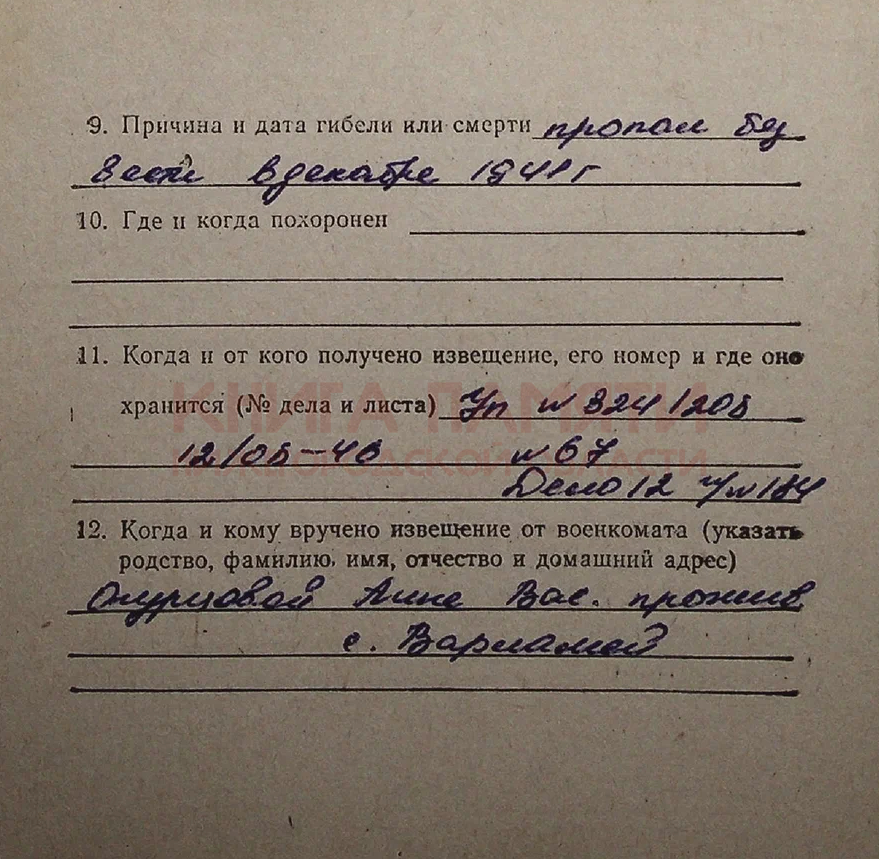 9. Причина и дата гибели или смерти пропал без
вести в декабре 1941 г
10. Где и когда похоронен
11. Когда и от кого получено извещение, его номер и где оно
хранится (№ дела и листа) Уп № 324/205
КНИГА ПАМЯТИ
12/05-46 № 67
Дело 12 № 184
12. Когда и кому вручено извещение от военкомата (указать
родство, фамилию, имя, отчество и домашний адрес)
Огурцовой Анне Вас. прожив
с. Варламов